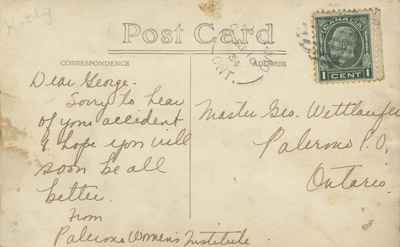 Post Card
CORRESPONDENCE
ADDRESS
CANADA
1 CENT 1
ONT.
Dear George.
Sorry to hear
of your accident
& hope you will
soon be all
better.
From
Palermo Women's Institute.
Master Geo. Wettlaufer
Palermo P.O,
Ontario.